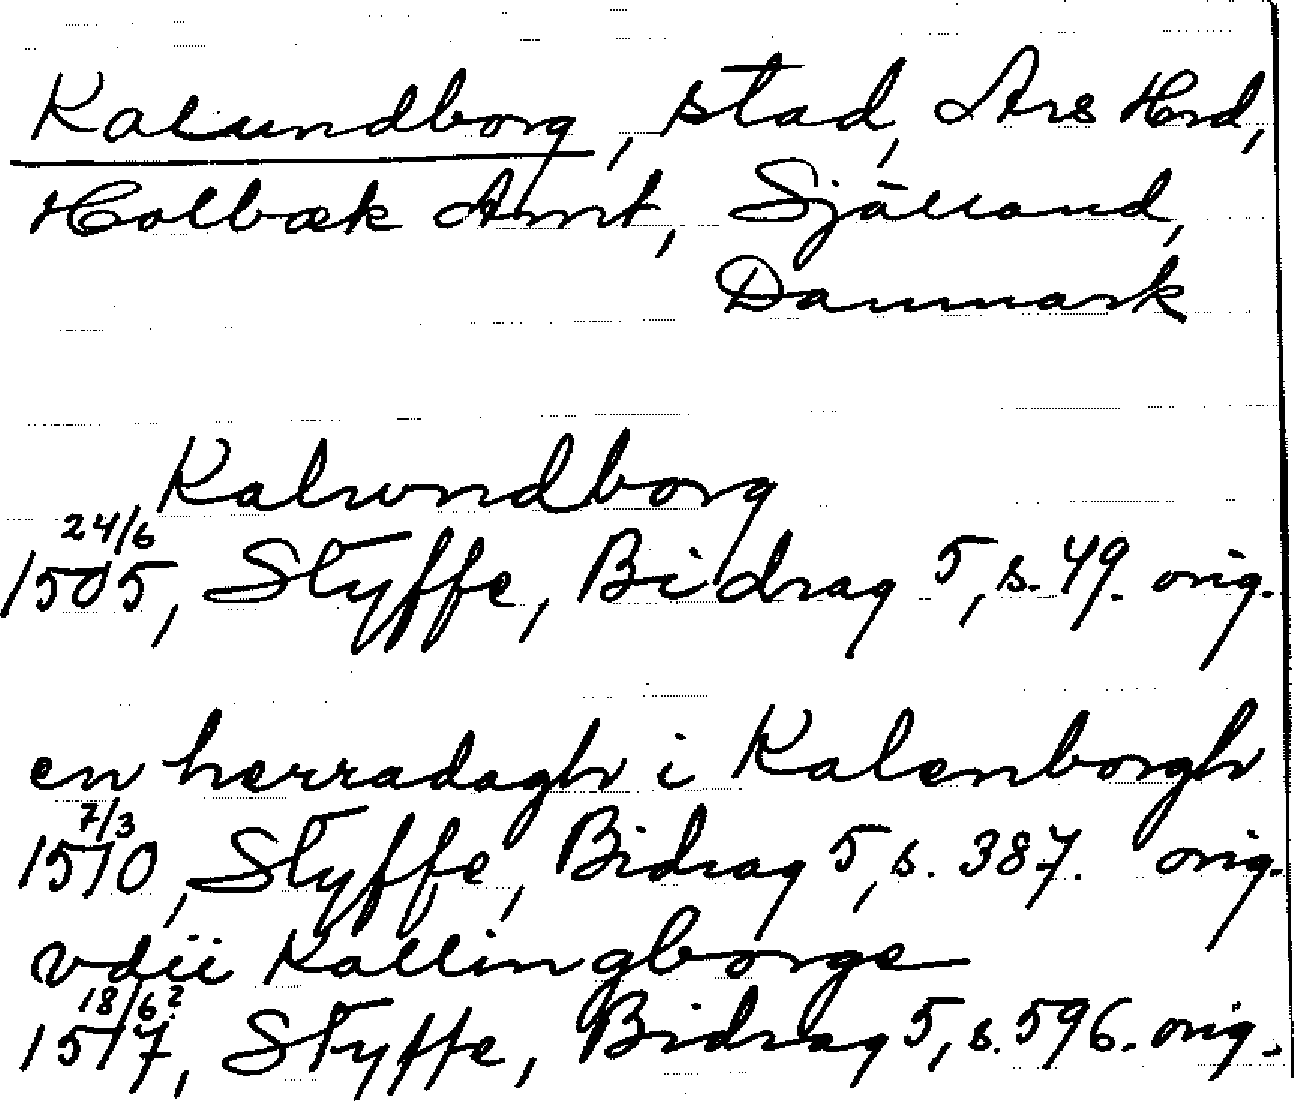 Kalundborg, stad, Ars Hrd,
Holbæk Amt, Själland,
Danmark
Kalundborg
24/6
1505, Styffe, Bidrag 5, s. 49. orig.
en herradagh i Kalenborgh
7/3
1510, Styffe, Bidrag 5, s. 387. orig.
vdii Kallingborge
18/6?
1517, Styffe, Bidrag 5, s. 596. orig.